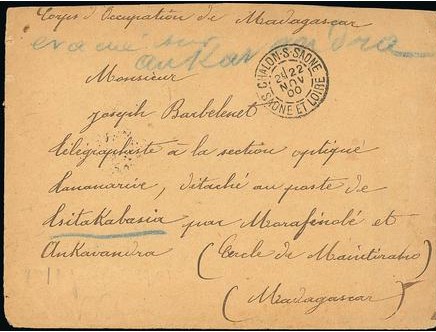 Corps d'Occupation de Madagascar
evacué sur
ankavandra
Monsieur
CHALON-S-SAONE
22
NOV
00
SAONE ET LOIRE
Joseph Barbelenet
télégraphiste à la section optique
Tananarive, détaché au poste de
Tsitakabasia par Morafénolé et
Ankavandra (Cercle de Maintirano)
(Madagascar)